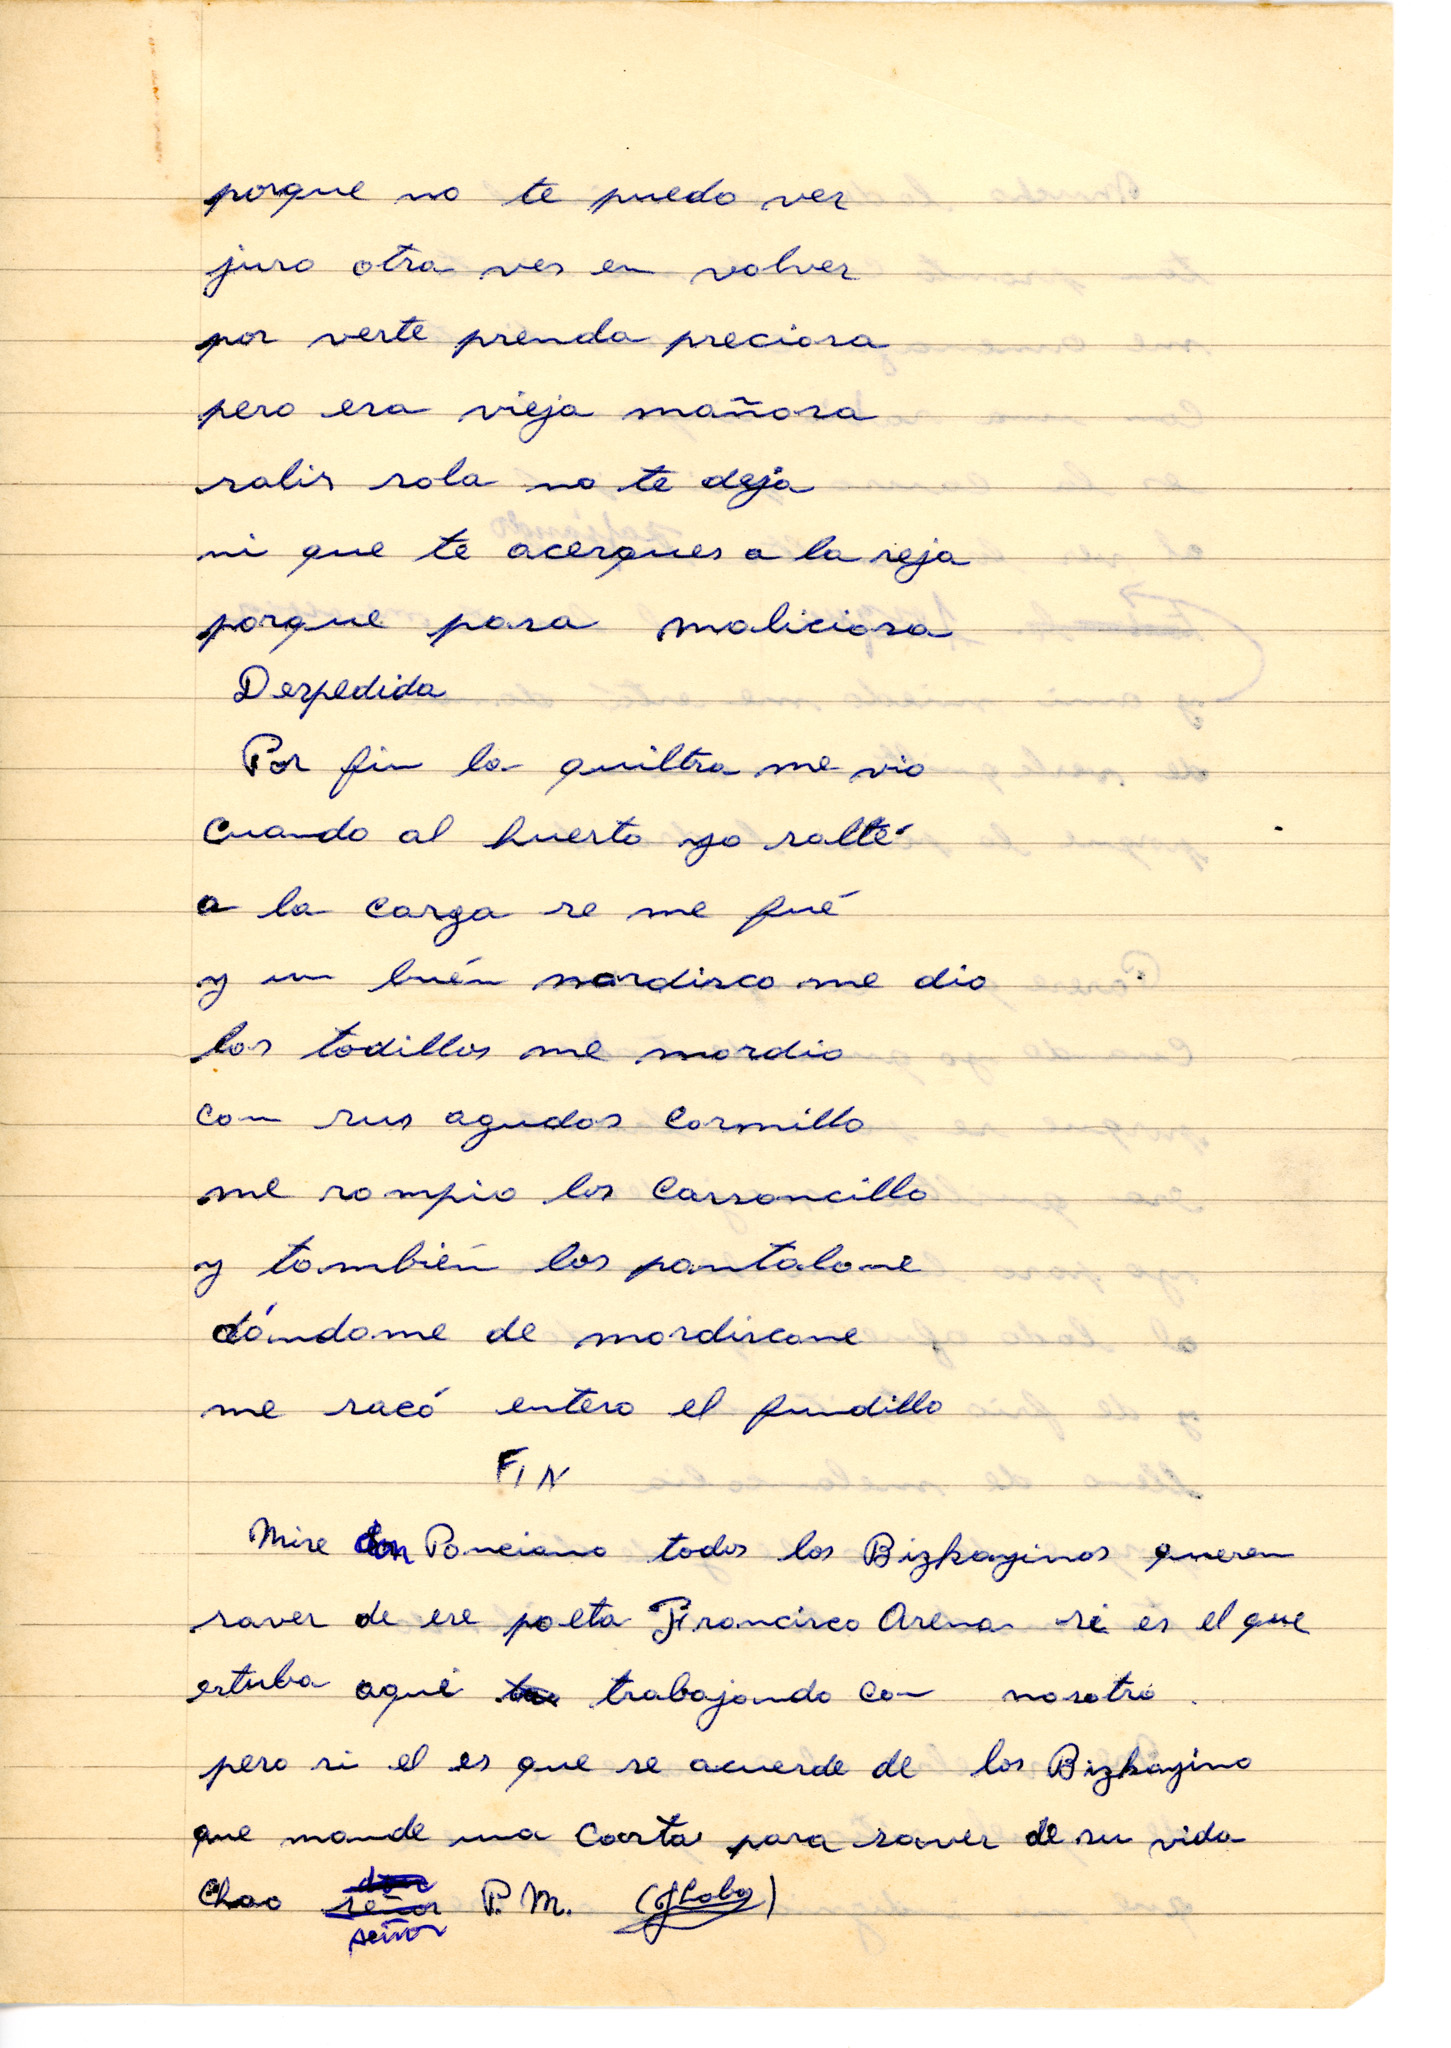 porque no te puedo ver
juro otra ves en volver
por verte prenda preciosa
pero era vieja mañosa
salir sola no te deja
ni que te acerques a la reja
porque pasa maliciosa
Despedida
Por fin la quiltra me vio
Cuando al huerto yo salté
a la carga se me fué
y un buén mordisco me dio
los todillos me mordio
con sus agudos Cormillo
me rompio los Carsoncillo
y también los pantalone
dándome de mordiscone
me sacó entero el fundillo
FIN
Mire don Ponciano todos los Bizkayinos queren
saver de ese poeta Francisco Arena si es el que
estuba aqui trabajando con nosotro.
pero si el es que se acuerde de los Bizkayino
que mande una Coarta para saver de su vida
Chao señor P. M.